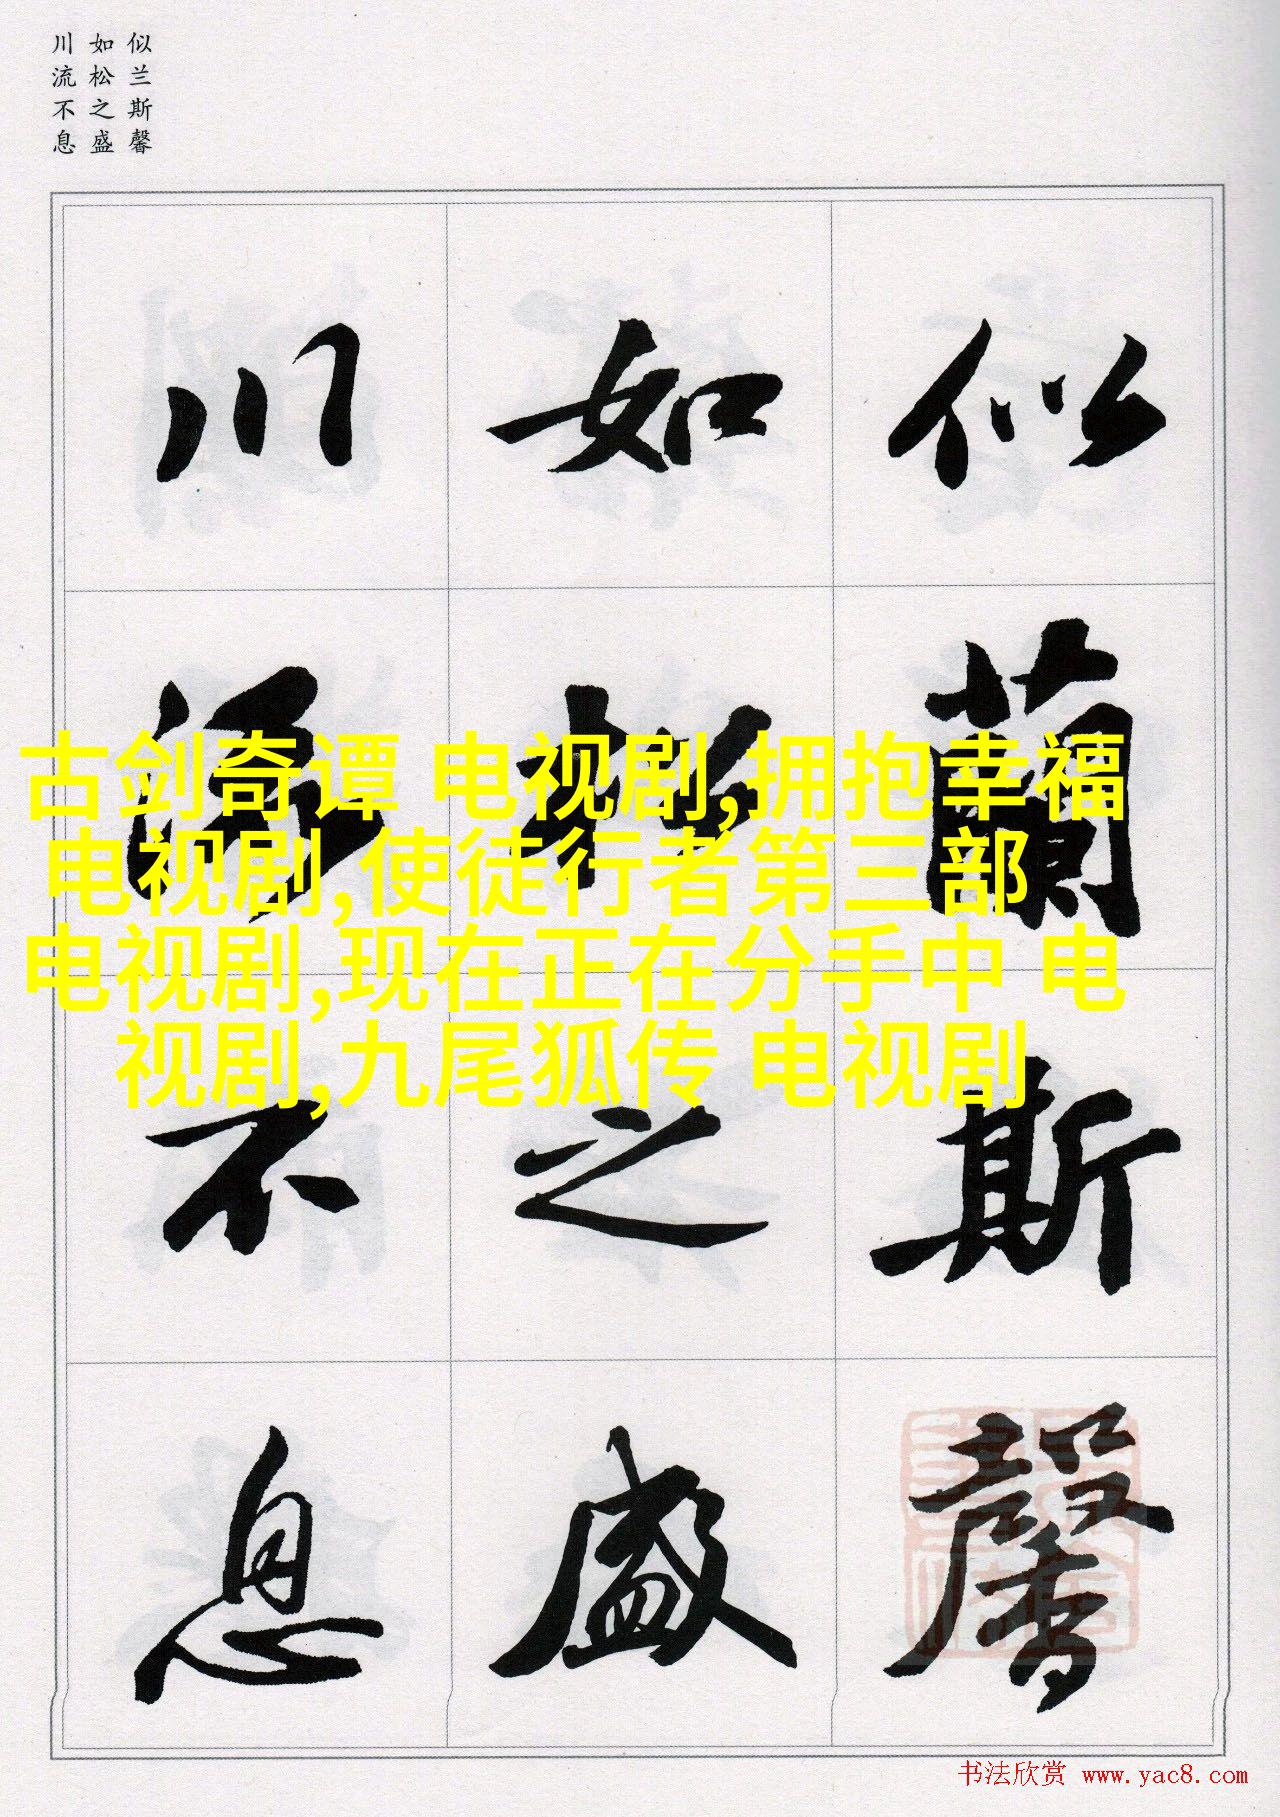 似兰斯馨
如松之盛
川流不息
似蘭斯馨
如松之盛
川流不息
古剑奇谭 电视剧,拥抱幸福
电视剧,使徒行者第三部
电视剧,现在正在分手中 电
视剧,九尾狐传 电视剧
书法欣赏 www.yac8.com